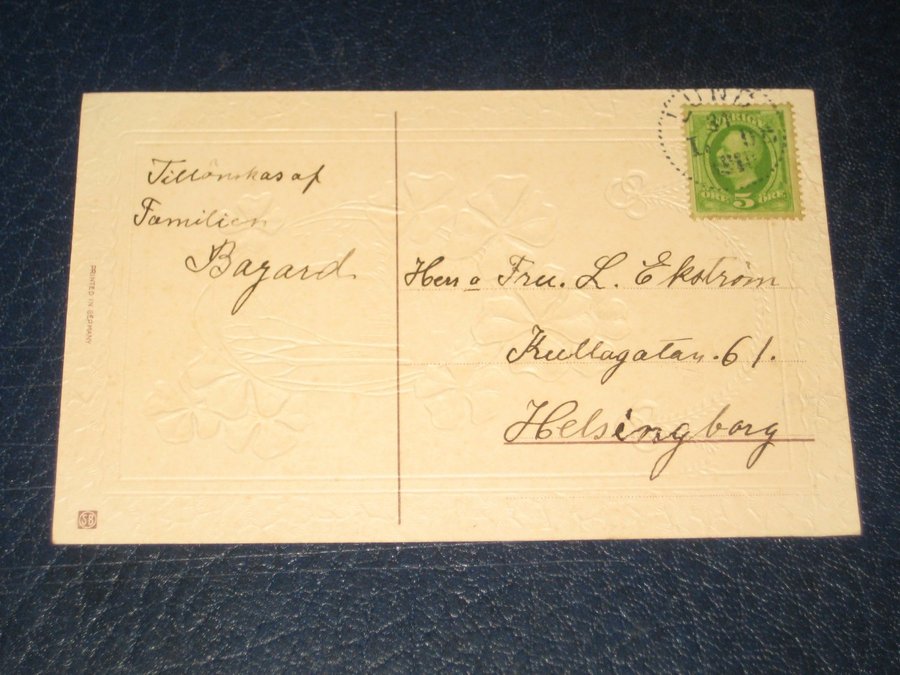 Tillönskas af
Familien
Bagard
Herr o Fru. L. Ekström
Kullagatan. 61.
Helsingborg
SVERIGE
5
ÖRE ÖRE
PRINTED IN GERMANY
SB